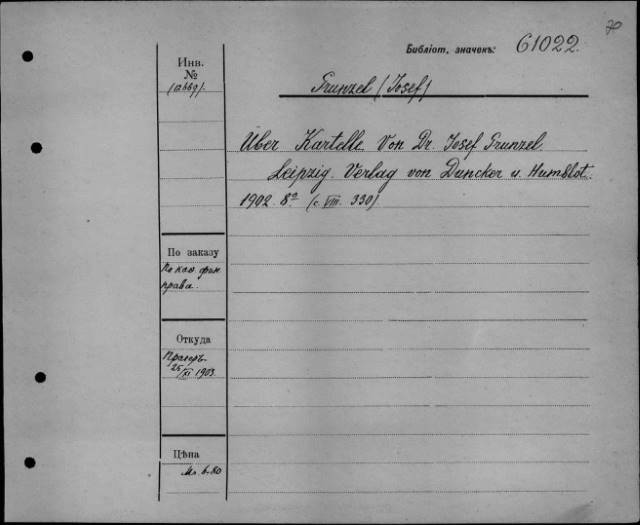 70
Библіот. значекъ: 61022
Инв.
№
Grunzel (Josef)
Über Kartelle Von Dr. Josef Grunzel.
Leipzig. Verlag von Duncker u. Humblot.
1902 8º (с. VIII. 330)
По заказу
По каѳ. фин.
права.
Откуда
Прагеръ
25/XI 1903.
Цѣна